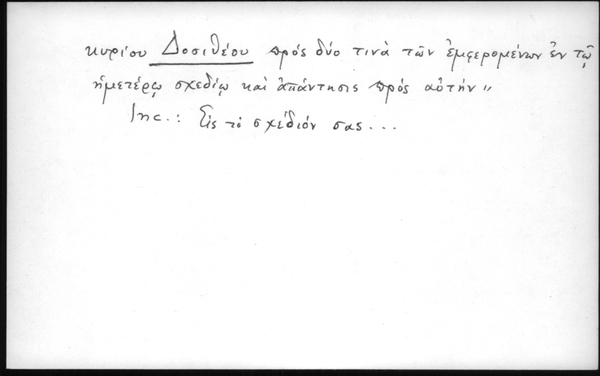 κυρίου Δοσιθέου πρός δύο τινὰ τῶν ἐμφερομένων ἐν τῷ
ἡμετέρῳ σχεδίῳ καὶ ἀπάντησις πρός αὐτήν"
Inc.: Εἰς τὸ σχέδιόν σας...